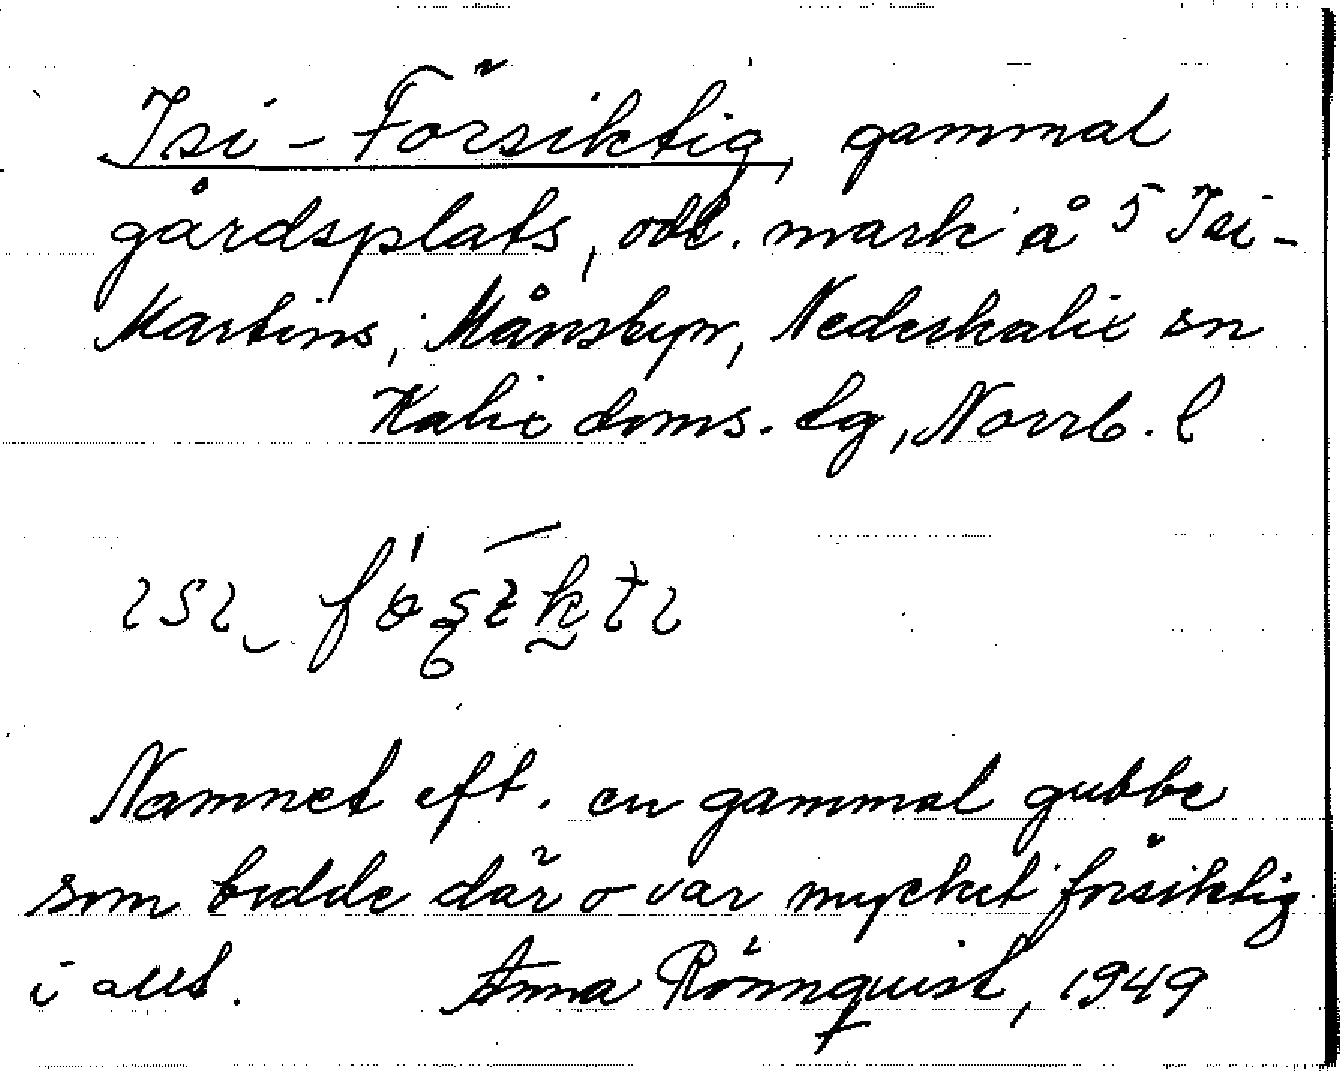 Isi-Försiktig, gammal
gårdsplats, odl. mark å 5 Isi-
Martins, Månsbyn, Nederkalix sn
Kalix doms. tg, Norrb. l
Namnet eft. en gammal gubbe
som bodde där o var mycket försiktig
i allt. Anna Rönnquist, 1949